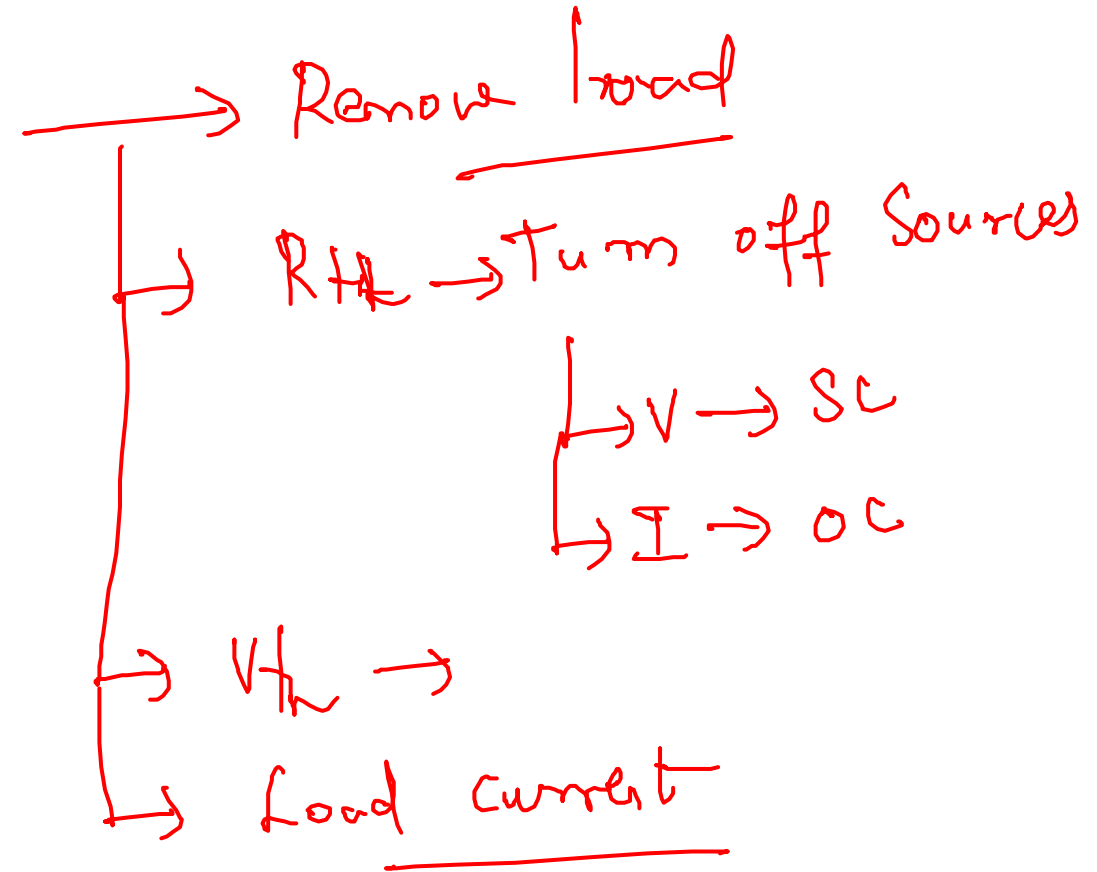 → Remove load
→ Rth → Turn off Sources
→ V → SC
→ I → OC
→ Vth →
→ Load current